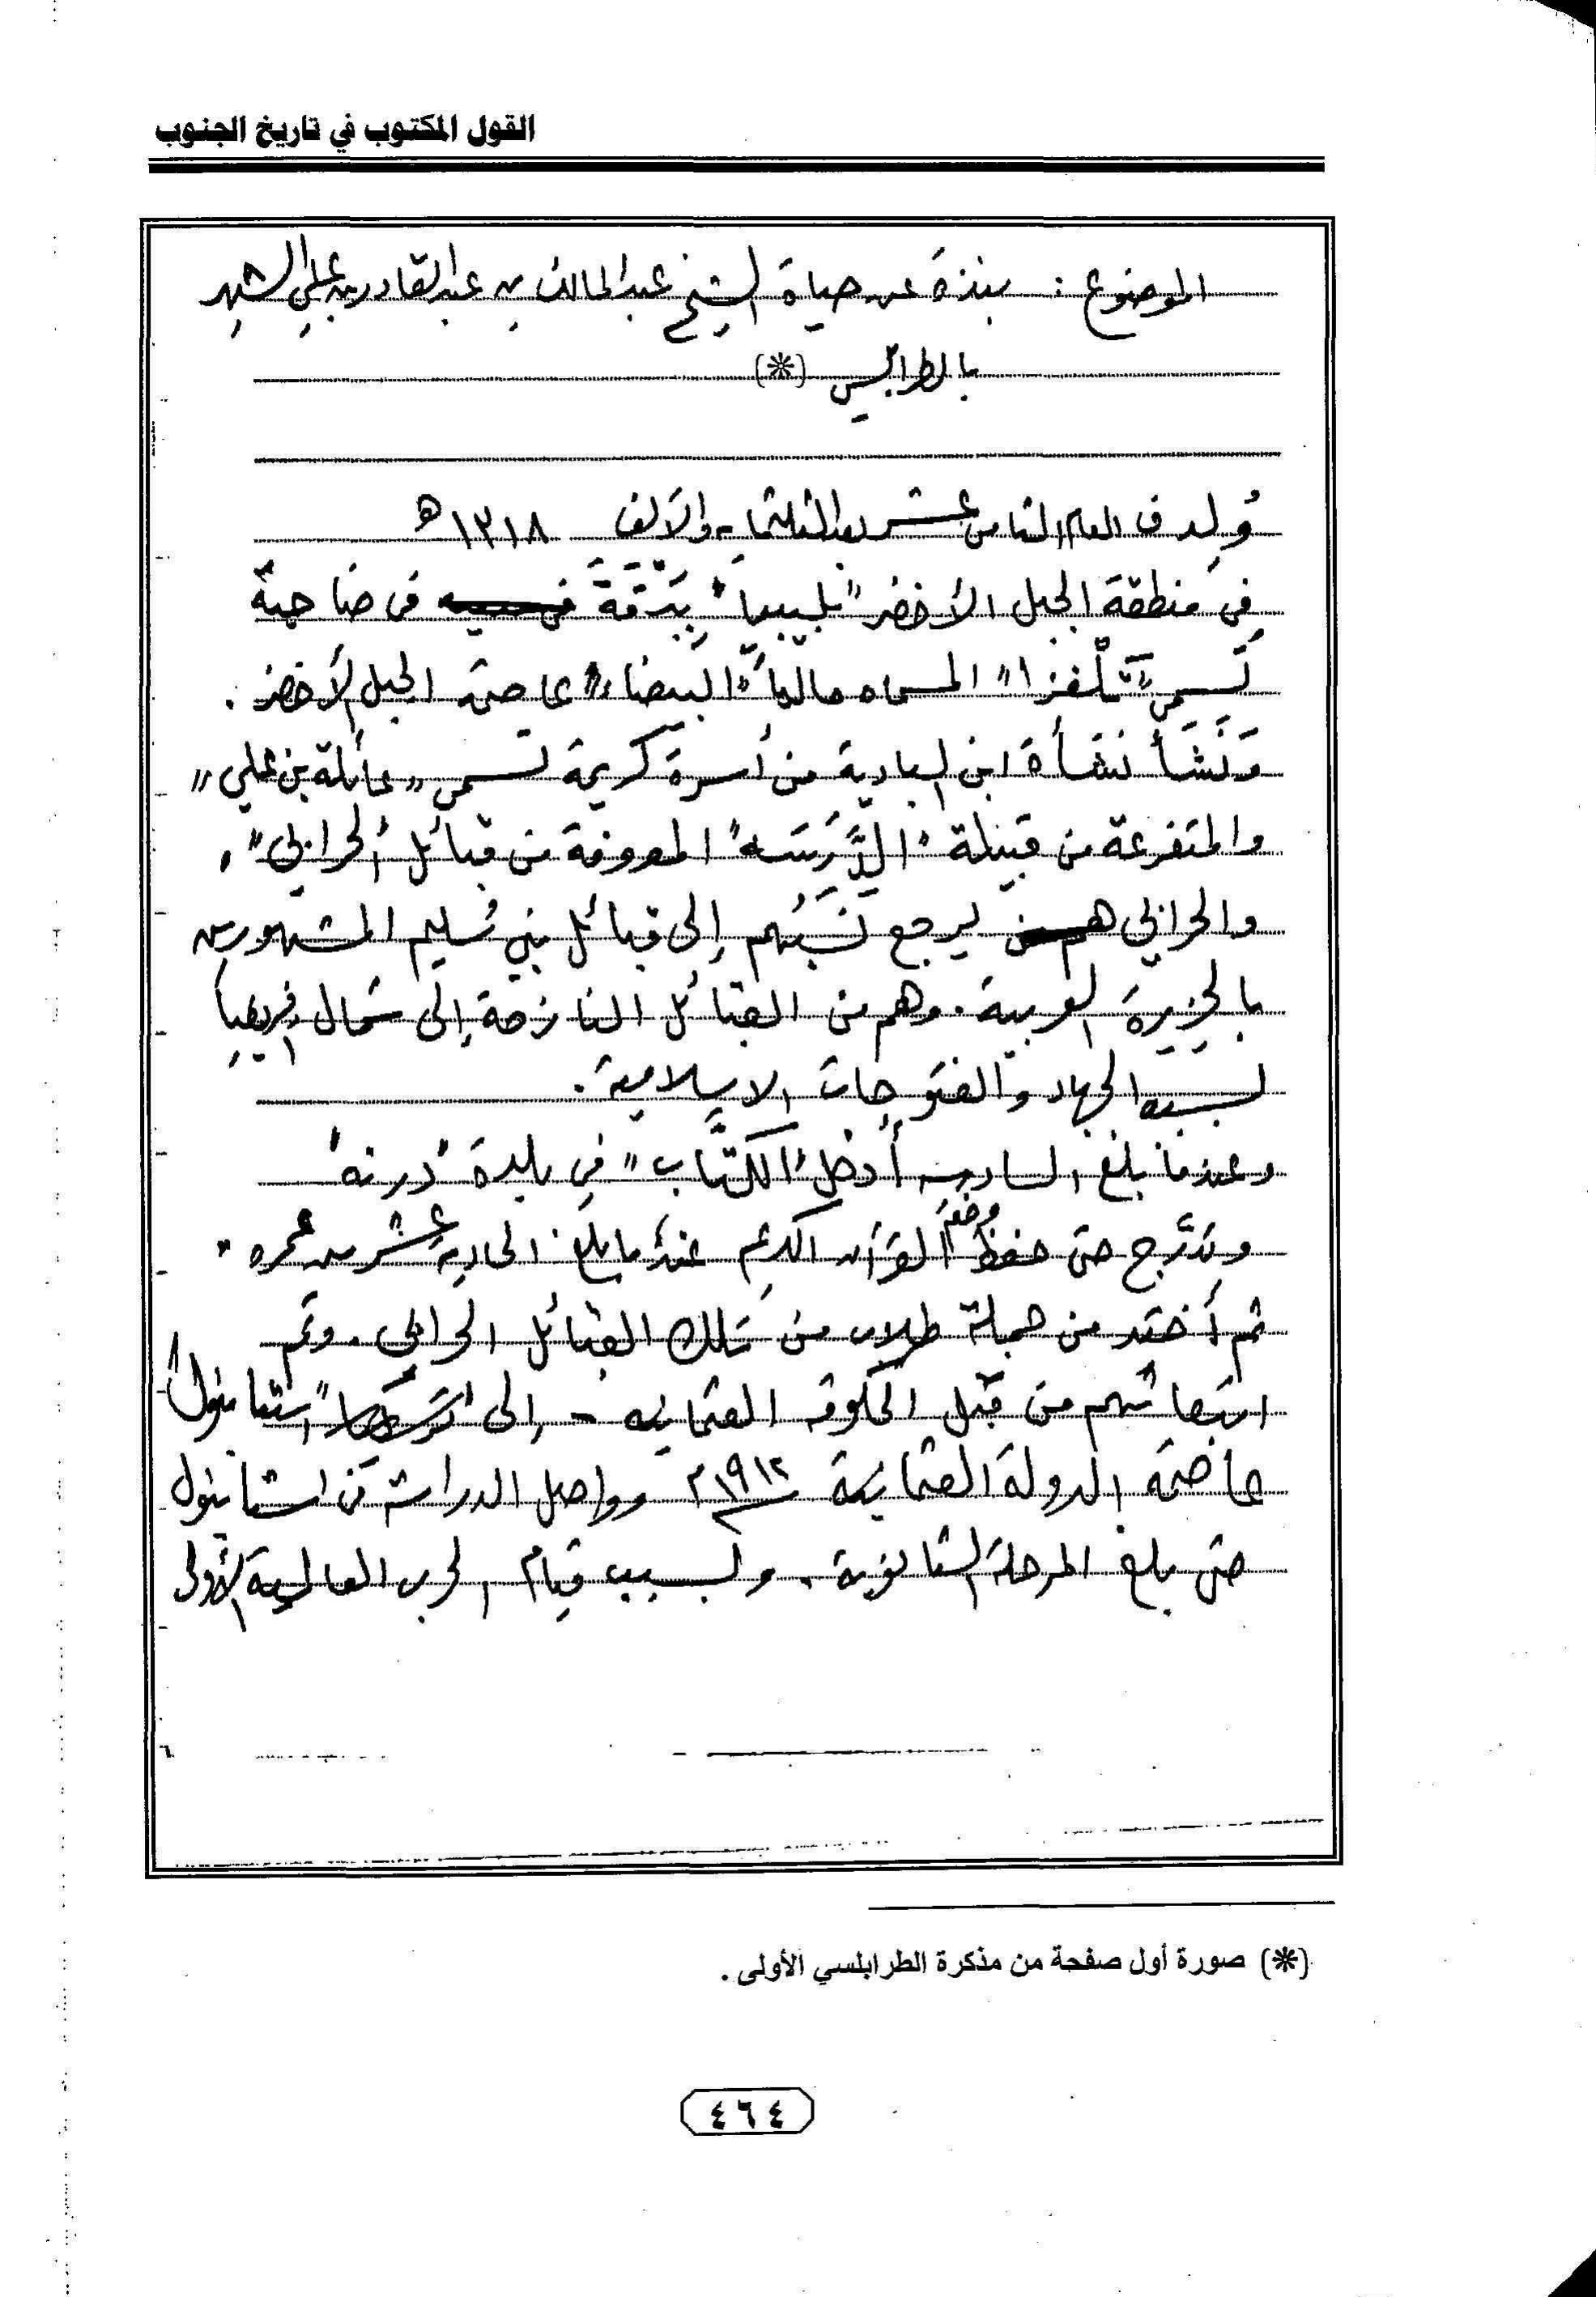 القول المكتوب في تاريخ الجنوب
الموضوع : نبذة عن حياة الشيخ عبد المالك بن عبد القادر بن علي الشهير
بالطرابلسي (*)
وُلِد في العام الثامن عشر بعد الثلثمائة والألف ١٣١٨ هـ
في منطقة الجبل الأخضر "بليبيا" بِبَرْقَة في ضاحية
تسمى "تَلْغزا" المسماه حالياً "البيضاء" عاصمة الجبل الأخضر .
وَنَشَأَ نَشأة ابن البادية من أسرة كريمة تسمى "عائلة بن علي"
والمتفرعة من قبيلة "الدَّرَسَه" المعروفة من قبائل "الحرابي" ،
والحرابي يرجع نَسَبُهم إلى قبائل بني سُليم المشهورين
بالجزيرة العربية . وهم من القبائل النازحة إلى شمال افريقيا
بسبب الجهاد والفتوحات الاسلامية .
وعندما بلغ السادسه أُدخل "الكُتَّاب" في بلدة "درنه"
وتدَّرج حتى حفظ القرآن الكريم عندما بلغ الحاديه عشر من عمره .
ثم أُختير من جملة طلاب من تلك القبائل الحرابي . وتم
ابتعاثهم من قبل الحكومة العثمانيه - إلى "استانبول"
عاصمة الدولة العثمانية ١٩١٢م وواصل الدراسة في استانبول
حتى بلغ المرحلة الثانوية . وبسبب قيام الحرب العالمية الأولى
(*) صورة أول صفحة من مذكرة الطرابلسي الأولى .
٤٦٤